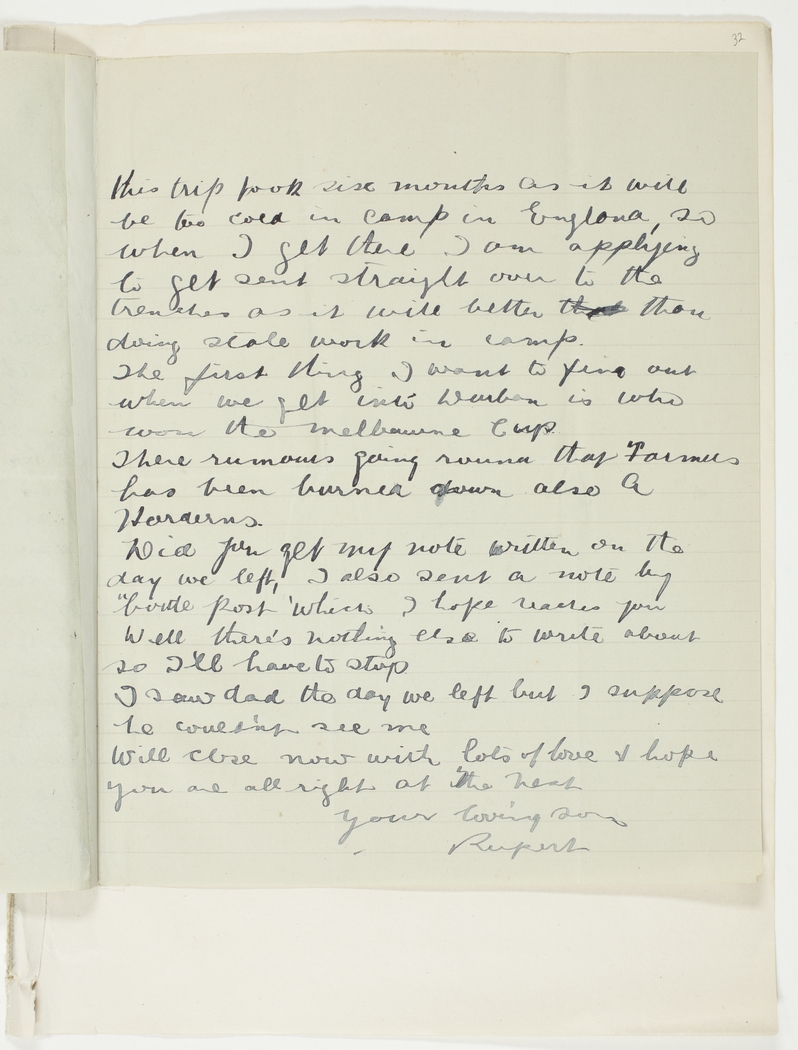 32
this trip took six months as it will
be too cold in camp in England, so
when I get there I am applying
to get sent straight over to the
trenches as it will better than
doing stale work in camp.
The first thing I want to find out
when we get into Durban is who
won the Melbourne Cup.
There rumours going round that Farmers
has been burned down also A
Horderns.
Did you get my note written on the
day we left, I also sent a note by
"bottle post" which I hope reaches you
Well there's nothing else to write about
so I'll have to stop
I saw dad the day we left but I suppose
he couldn't see me
Will close now with lots of love & hope
you are all right at the
Your loving son
Rupert